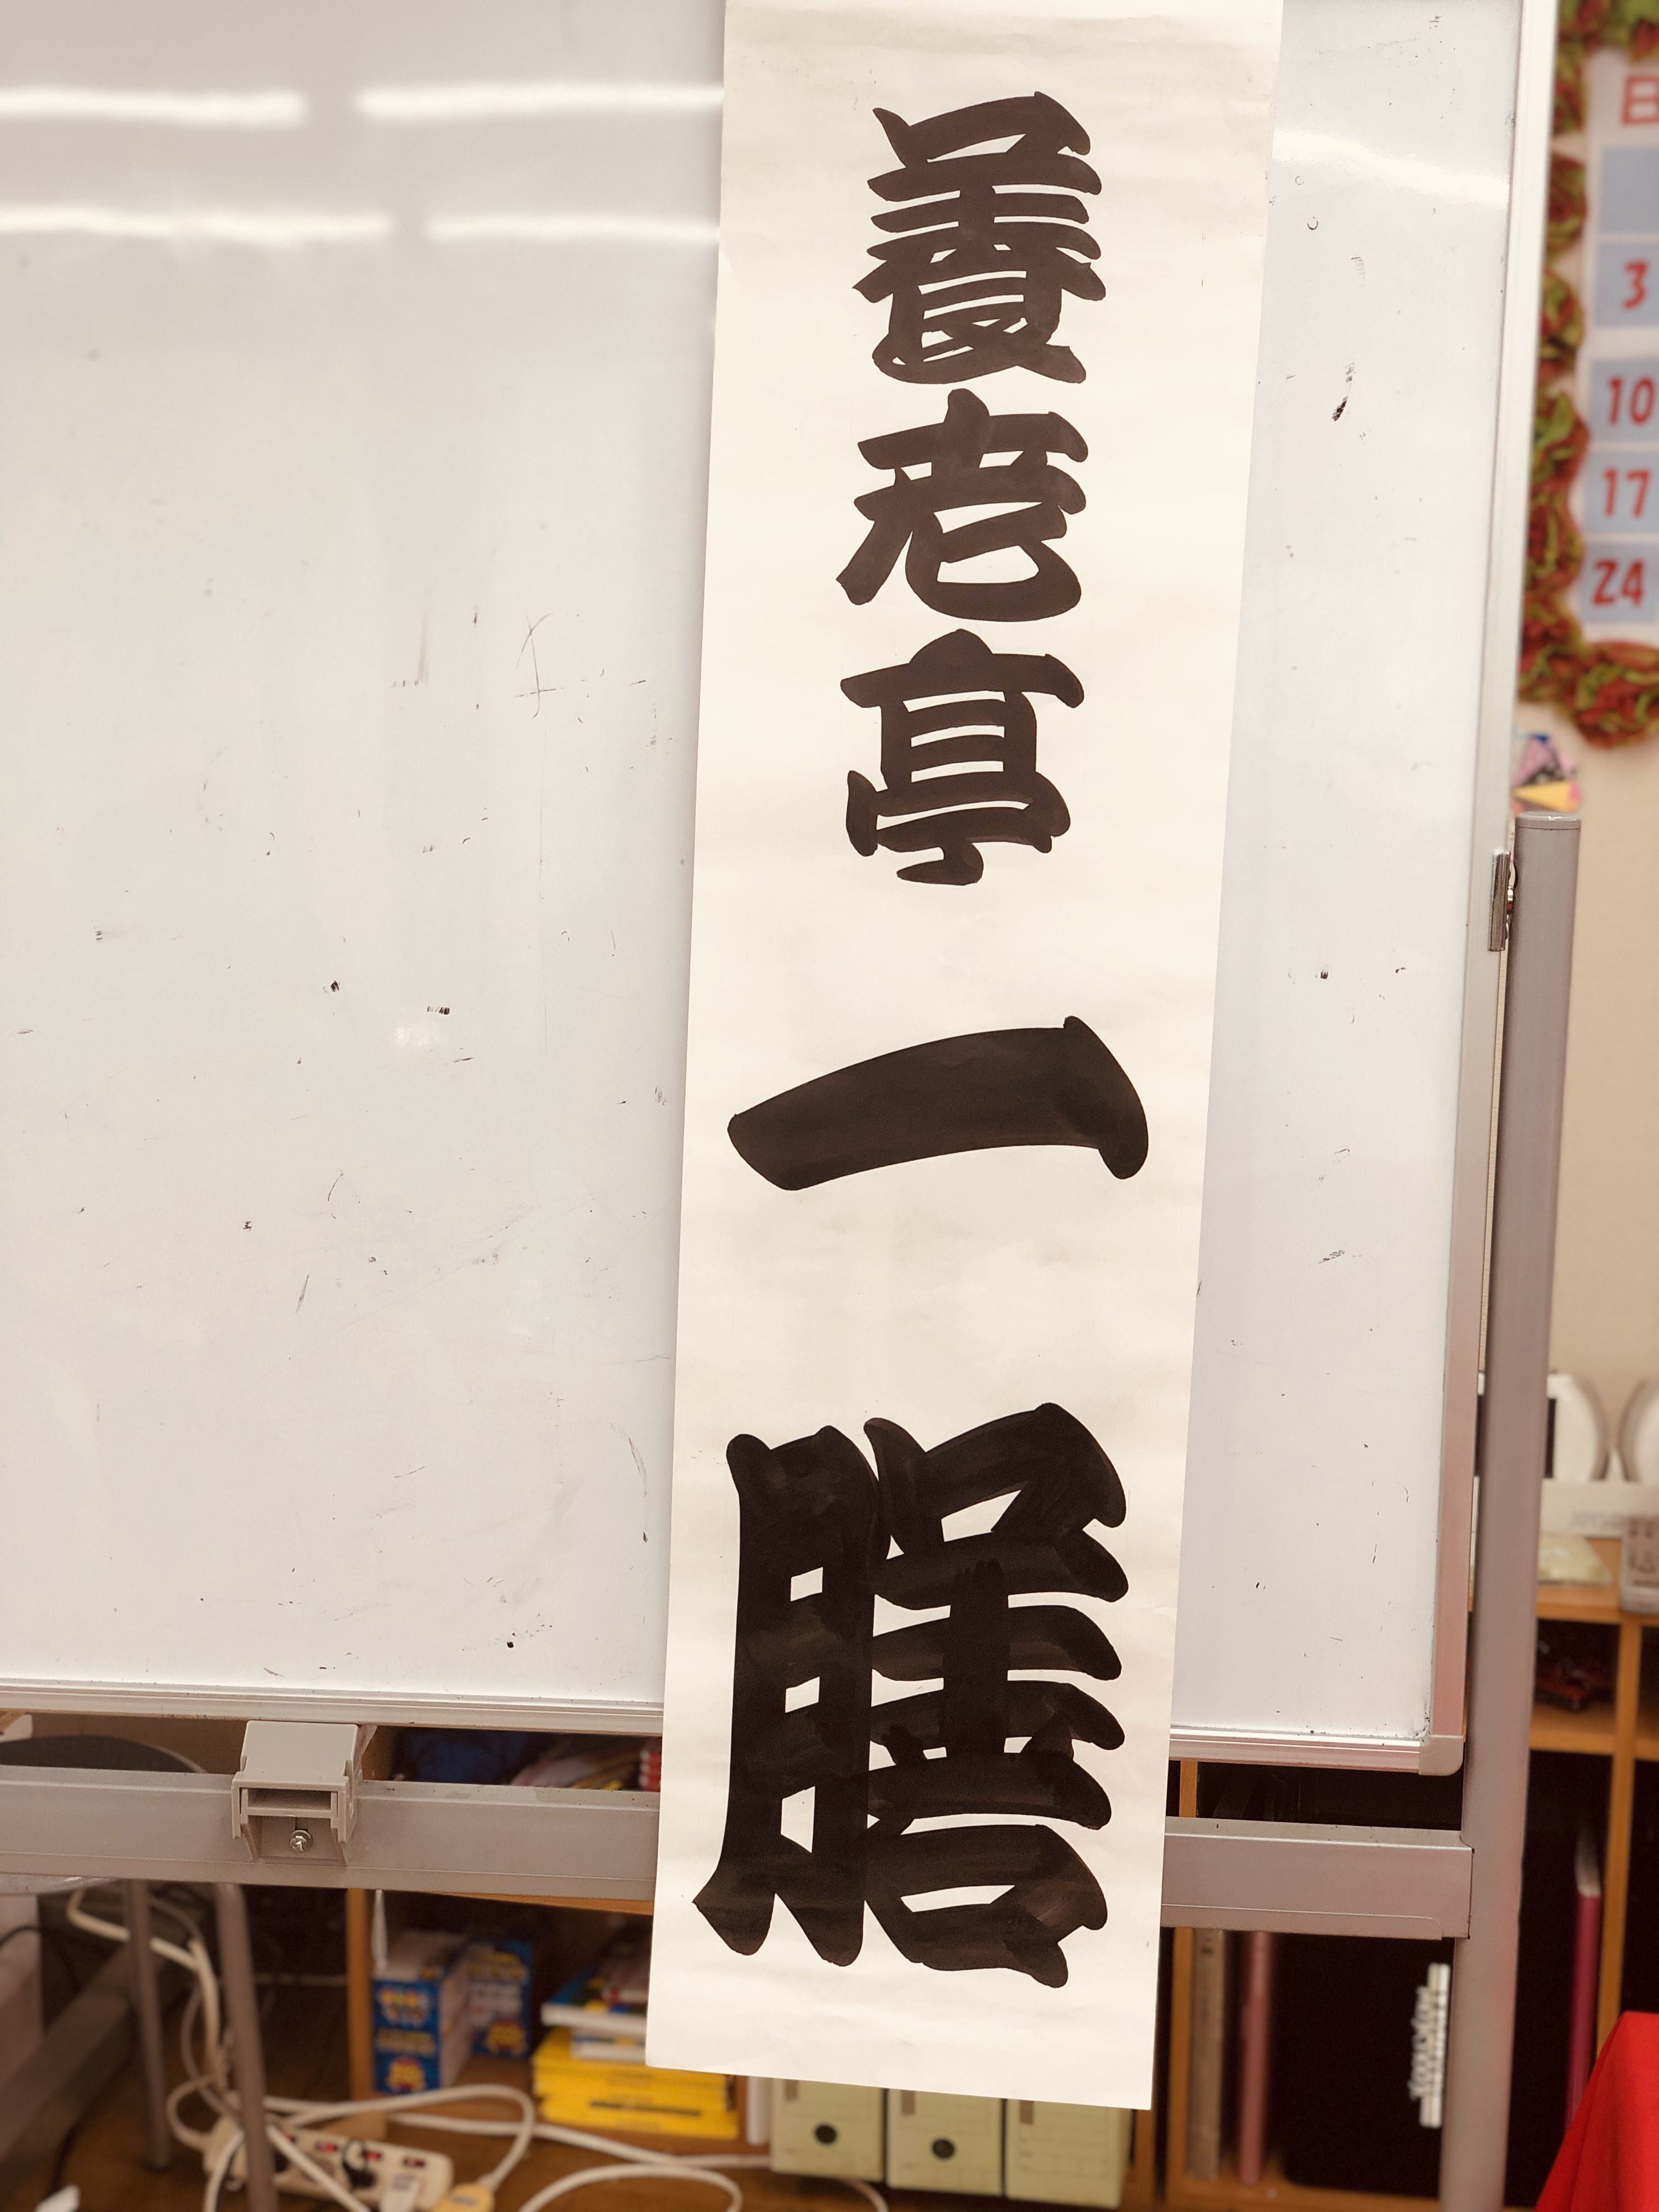 養老亭
一膳
日
3
10
17
24